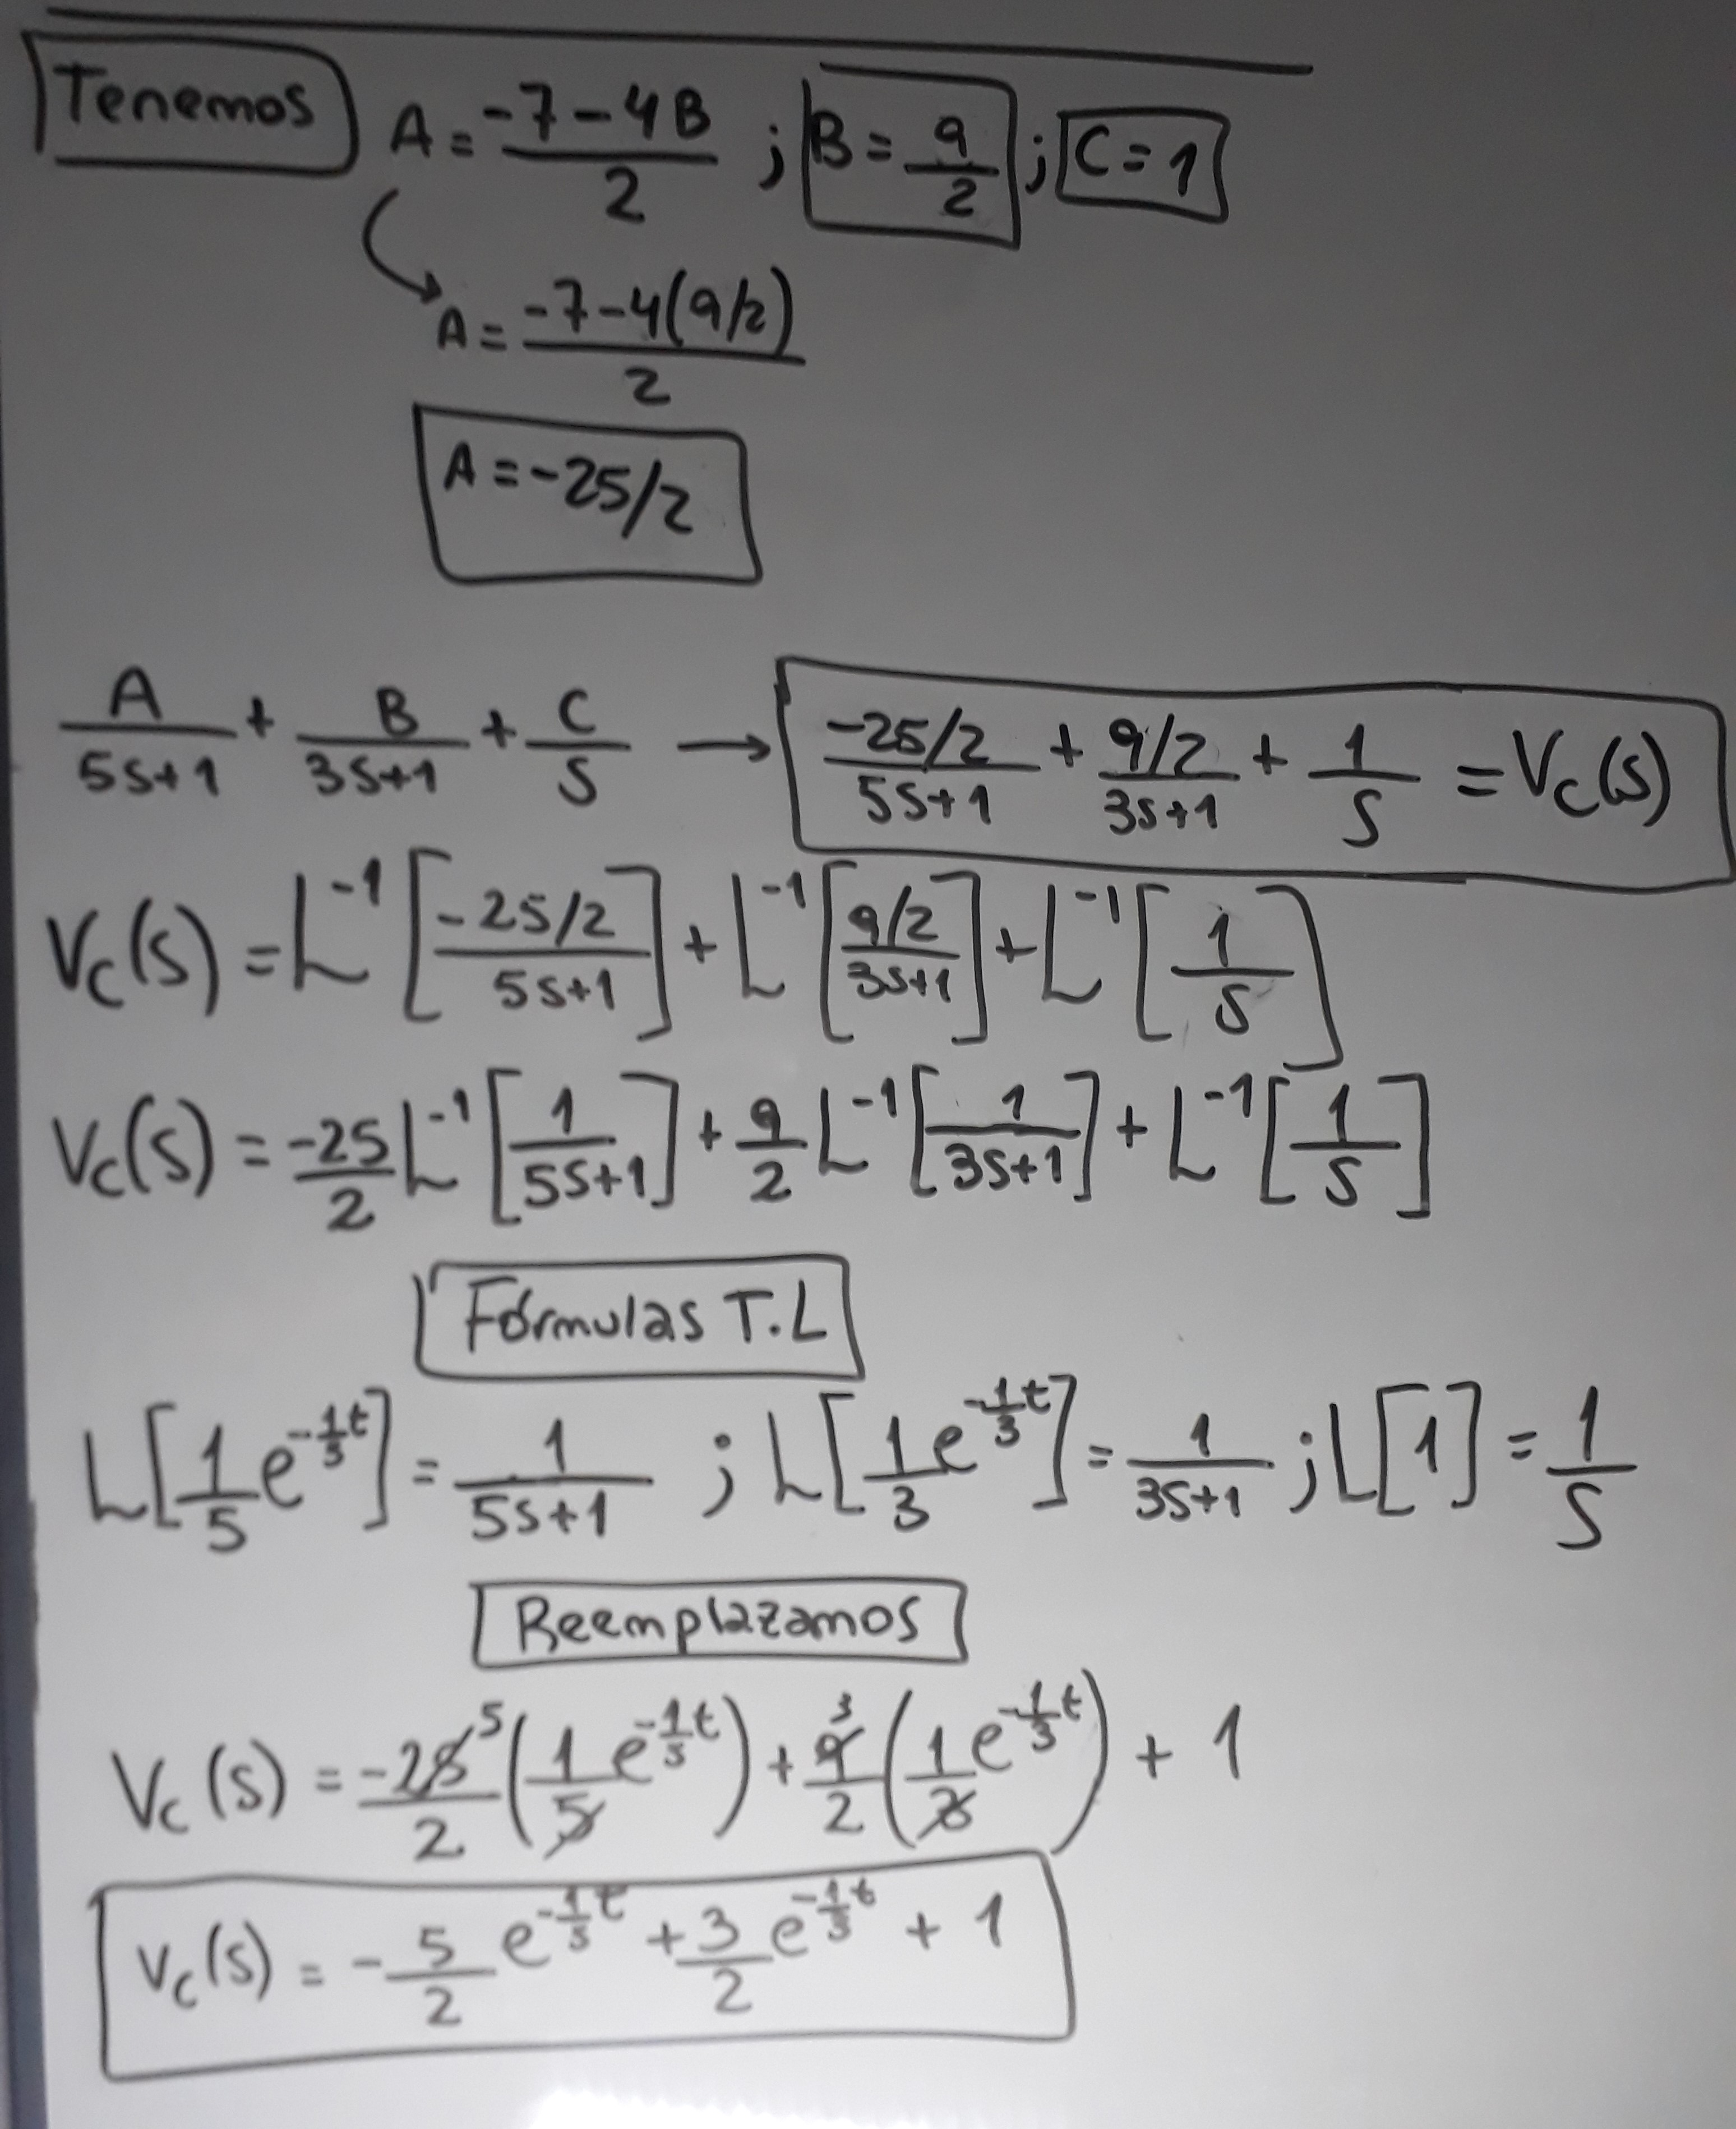 Tenemos A = (-7-4B)/2 ; B = 9/2 ; C = 1
A = (-7-4(9/2))/2
A = -25/2
A/(5s+1) + B/(3s+1) + C/s → (-25/2)/(5s+1) + (9/2)/(3s+1) + 1/s = Vc(s)
Vc(s) = L⁻¹[(-25/2)/(5s+1)] + L⁻¹[(9/2)/(3s+1)] + L⁻¹[1/s]
Vc(s) = -25/2 L⁻¹[1/(5s+1)] + 9/2 L⁻¹[1/(3s+1)] + L⁻¹[1/s]
Fórmulas T.L
L[1/5 e^(-1/5 t)] = 1/(5s+1) ; L[1/3 e^(-1/3 t)] = 1/(3s+1) ; L[1] = 1/s
Reemplazamos
Vc(s) = -25/2 5 (1/5 e^(-1/5 t)) + 9/2 3 (1/3 e^(-1/3 t)) + 1
Vc(s) = -5/2 e^(-1/5 t) + 3/2 e^(-1/3 t) + 1